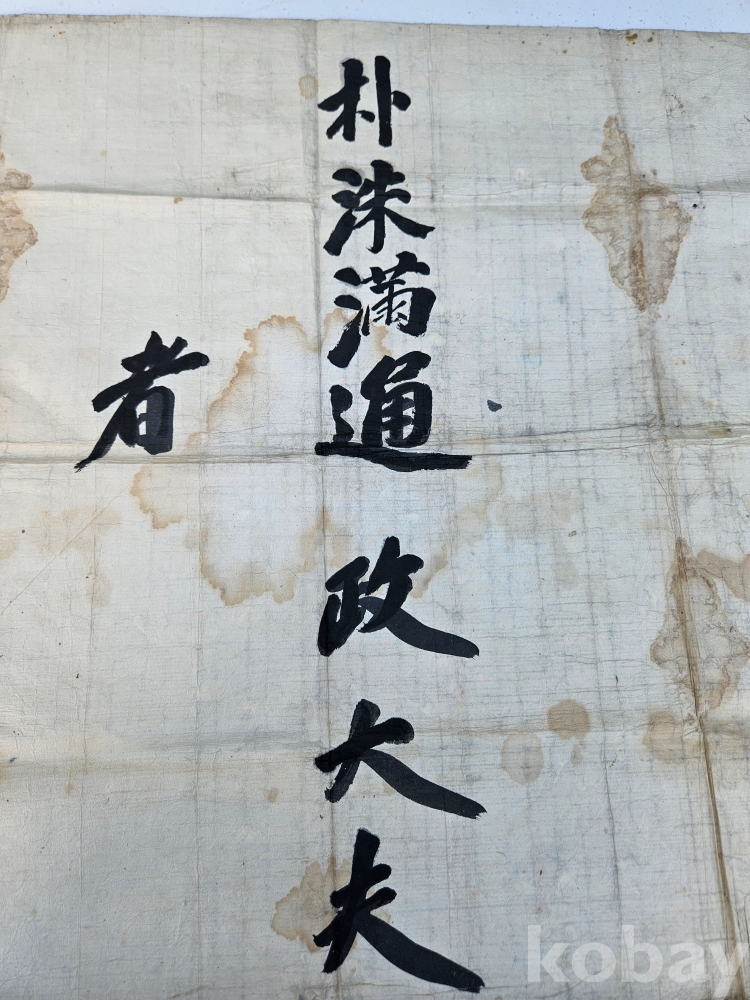 朴洙滿通政大夫
者
kobay